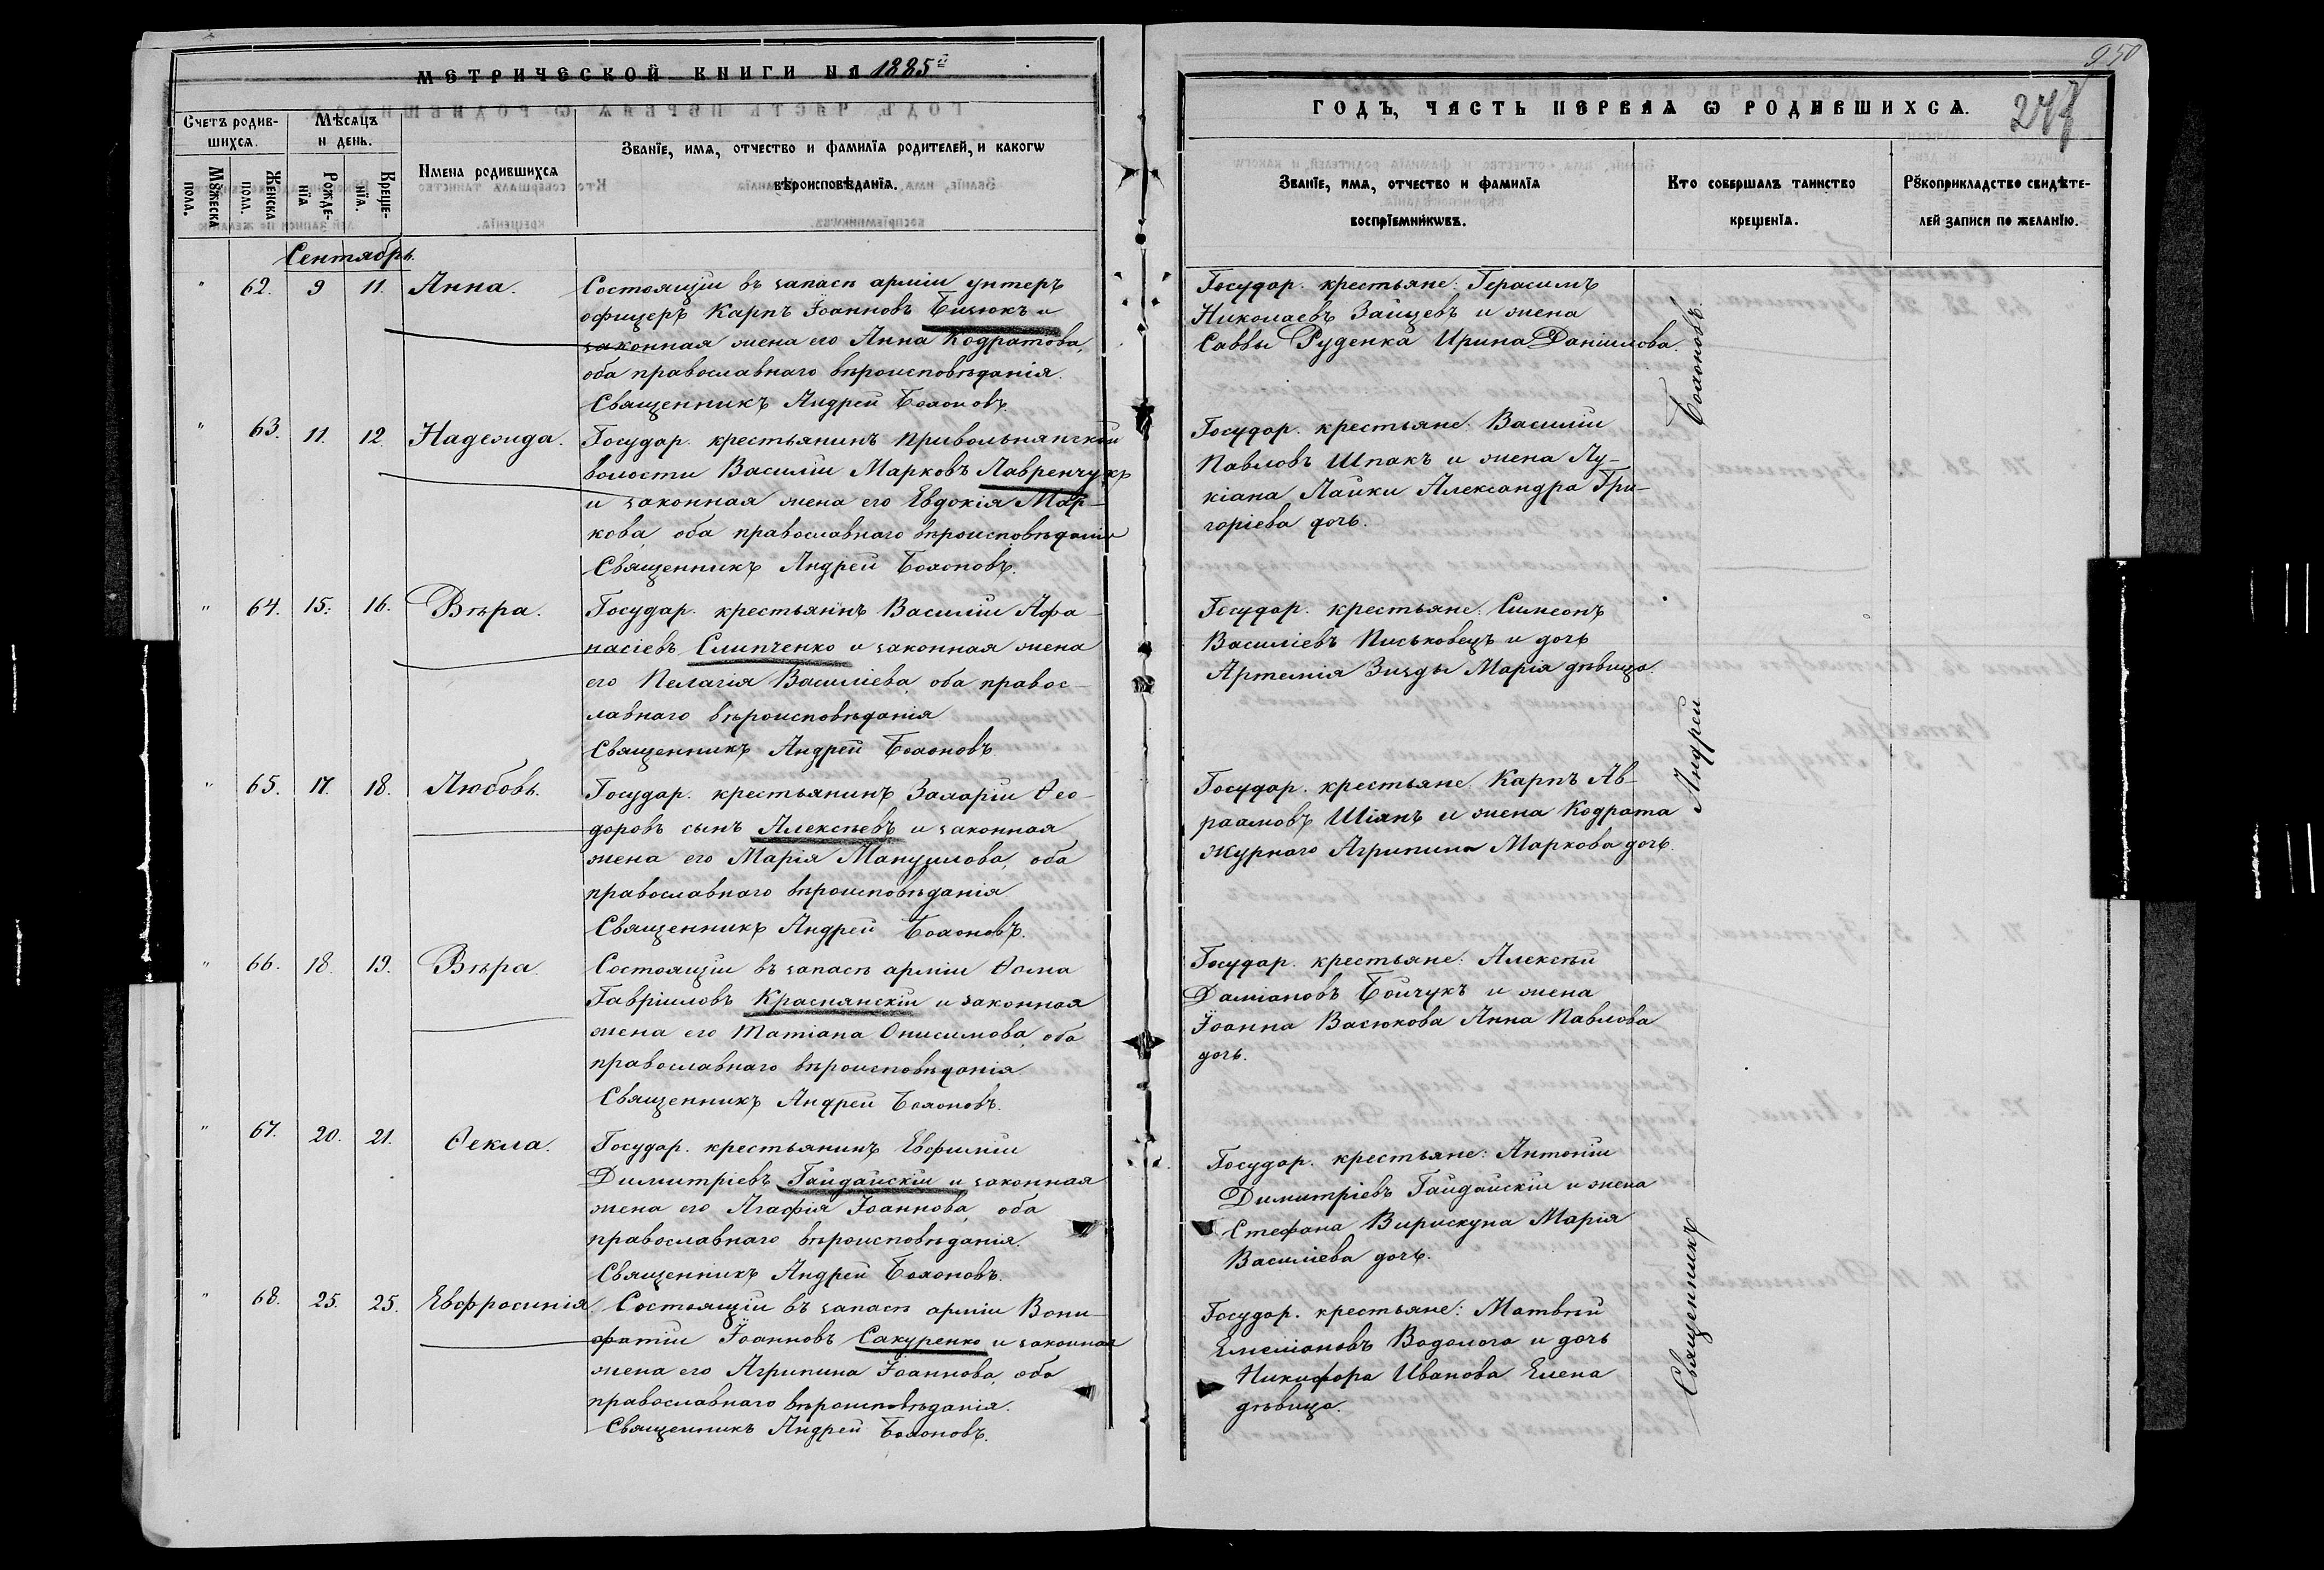 МЕТРИЧЕСКОЙ КНИГИ НА 1885й
Счетъ родив-
шихсѧ.
Мѣсѧцъ
и день.
Мꙋжеска
пола.
Женска
пола.
Рожде-
нїѧ
Креще-
нїѧ.
Имена родившихсѧ
Званїе, имѧ, отчество и фамилїѧ родителей, и какогѡ
вѣроисповѣданїѧ.
Сентябрь.
" 62. 9 11. Анна. Состоящій въ запасѣ арміи унтеръ
офицеръ Карпъ Іоанновъ Бизюкъ и
законная жена его Анна Кодратова,
оба православнаго вѣроисповѣданія.
Священникъ Андрей
" 63. 11. 12 Надежда. Государ. крестьянинъ Привольнянской
волости Василій Марковъ Лавренчукъ
и законная жена его Евдокія Мар-
кова, оба православнаго вѣроисповѣданія
Священникъ Андрей
" 64. 15. 16. Вѣра. Государ. крестьянинъ Василій Афа-
насіевъ Слипченко и законная жена
его Пелагія Василіева, оба правос-
лавнаго вѣроисповѣданія
Священникъ Андрей
" 65. 17. 18. Любовь. Государ. крестьянинъ Захарій Ѳео-
доровъ сынъ Алексѣевъ и законная
жена его Марія Мануилова, оба
православнаго вѣроисповѣданія
Священникъ Андрей
" 66. 18. 19. Вѣра. Состоящій въ запасѣ арміи Ѳома
Гавріиловъ Краснянскій и законная
жена его Татіана Онисимова, оба
православнаго вѣроисповѣданія
Священникъ Андрей
" 67. 20. 21. Ѳекла. Государ. крестьянинъ Евфимій
Димитріевъ Гайдайскій и законная
жена его Агафія Іоаннова, оба
православнаго вѣроисповѣданія.
Священникъ Андрей
" 68. 25. 25. Евфросинія. Состоящій въ запасѣ арміи Вони-
фатій Іоанновъ Сакуренко и законная
жена его Агрипина Іоаннова, оба
православнаго вѣроисповѣданія.
Священникъ Андрей
950
247
ГОДЪ, ЧАСТЬ ПЕРВАѦ Ѡ РОДИВШИХСѦ.
Званїе, имѧ, отчество и фамилїѧ
воспрїемникѡвъ.
Кто совершалъ таинство
крещенїѧ.
Рꙋкоприкладство свидѣте-
лей записи по желанїю.
Государ. крестьяне: Герасимъ
Николаевъ Зайцевъ и жена
Саввы Руденка Ирина Даніилова.
Государ. крестьяне: Василій
Павловъ Шпакъ и жена Лу-
кіана Лайки Александра Гри-
горіева дочь.
Государ. крестьяне: Симеонъ
Василіевъ Письковецъ и дочь
Артемія Зизды Марія дѣвица.
Государ. крестьяне, Карпъ Ав-
раамовъ Шіянъ и жена Кодрата
Журнаго Агрипина Маркова дочь.
Государ. крестьяне: Алексѣй
Даміановъ Бойчукъ и жена
Іоанна Васюкова Анна Павлова
дочь.
Государ. крестьяне: Антоній
Димитріевъ Гайдайскій и жена
Стефана Вирискуна Марія
Василіева дочь.
Государ. крестьяне: Матвѣй
Емеліановъ Водолога и дочь
Никифора Иванова Елена
дѣвица.
Священникъ Андрей